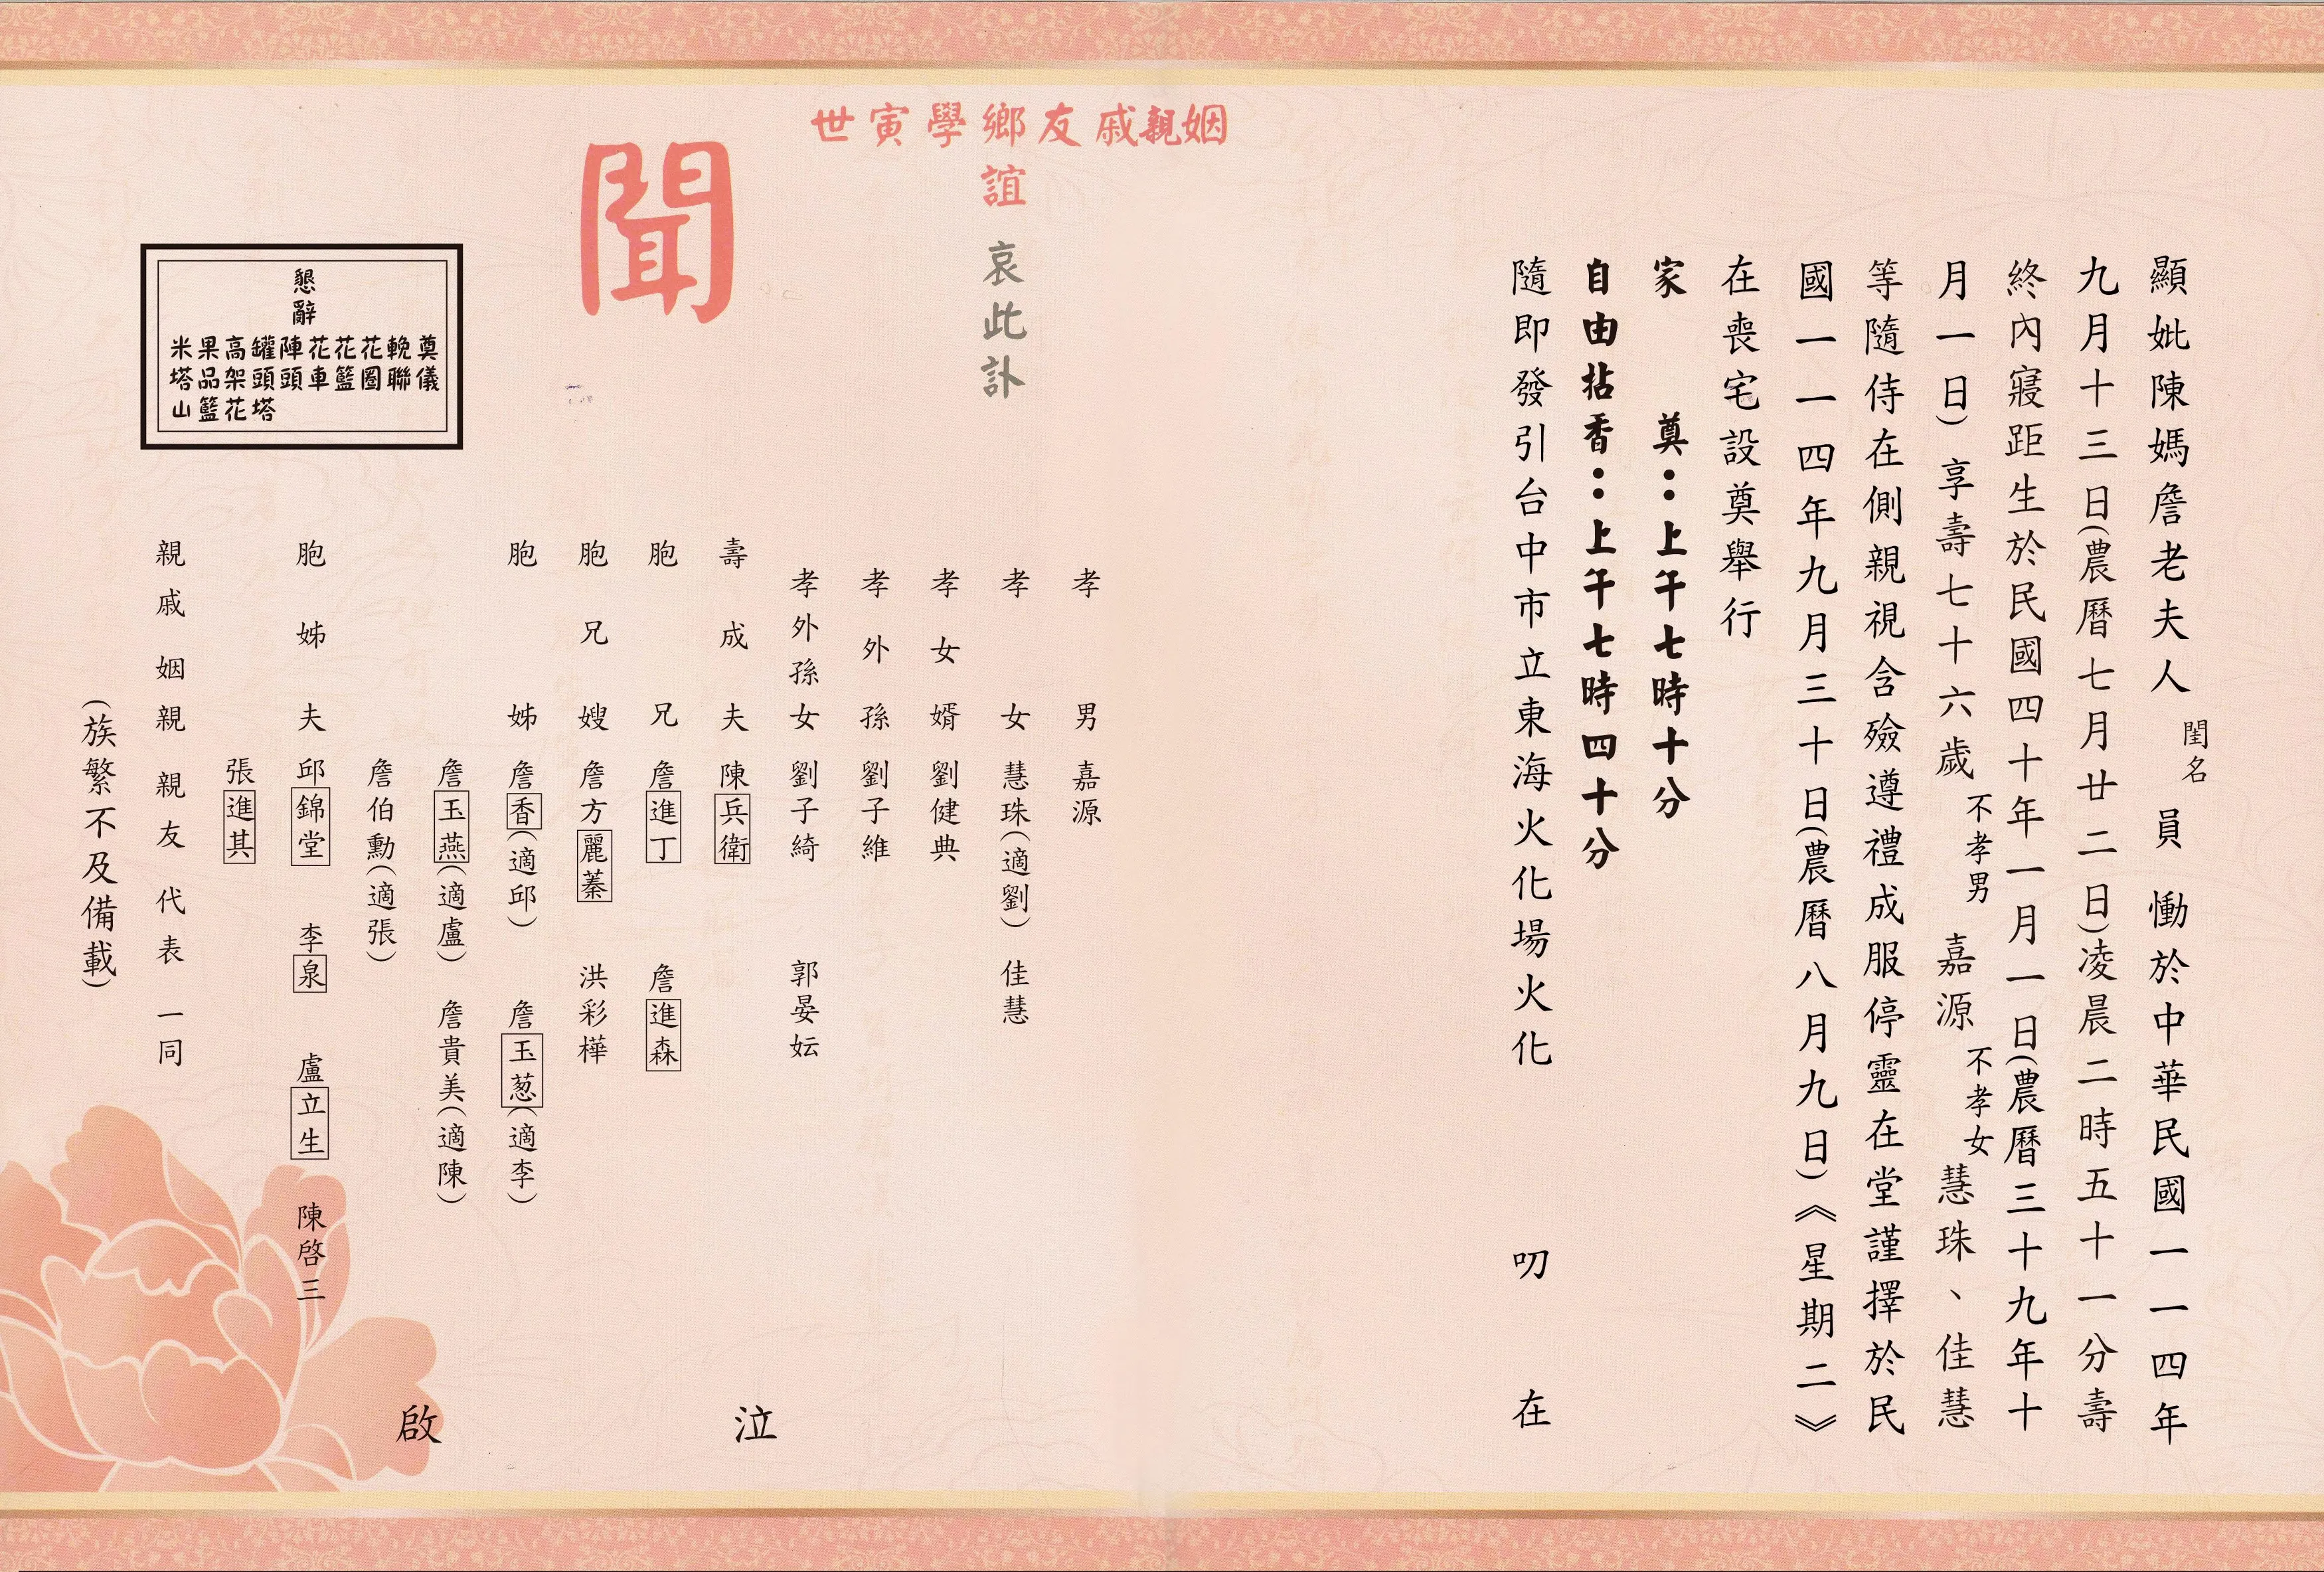 顯妣陳媽詹老夫人閨名員慟於中華民國一一四年
九月十三日(農曆七月廿二日)凌晨二時五十一分壽
終內寢距生於民國四十年一月一日(農曆三十九年十
月一日)享壽七十六歲不孝男嘉源不孝女慧珠、佳慧
等隨侍在側親視含殮遵禮成服停靈在堂謹擇於民
國一一四年九月三十日(農曆八月九日)《星期二》
在喪宅設奠舉行
家奠：上午七時十分
自由拈香：上午七時四十分
隨即發引台中市立東海火化場火化 叨在
姻親戚友鄉學寅世
誼 哀此訃
聞
孝男 嘉源
孝女 慧珠(適劉) 佳慧
孝女婿 劉健典
孝外孫 劉子維
孝外孫女 劉子綺 郭晏妘
壽成夫 陳兵衛
胞兄 詹進丁 詹進森
胞兄嫂 詹方麗蓁 洪彩樺
胞姊 詹香(適邱) 詹玉葱(適李)
詹玉燕(適盧) 詹貴美(適陳)
詹伯勳(適張)
胞姊夫 邱錦堂 李泉 盧立生 陳啓三
張進其
親戚姻親親友代表一同
(族繁不及備載)
泣啟
懇辭
奠儀
輓聯
花圈
花籃
花車
陣頭
罐頭塔
高架花
果品籃
米塔山